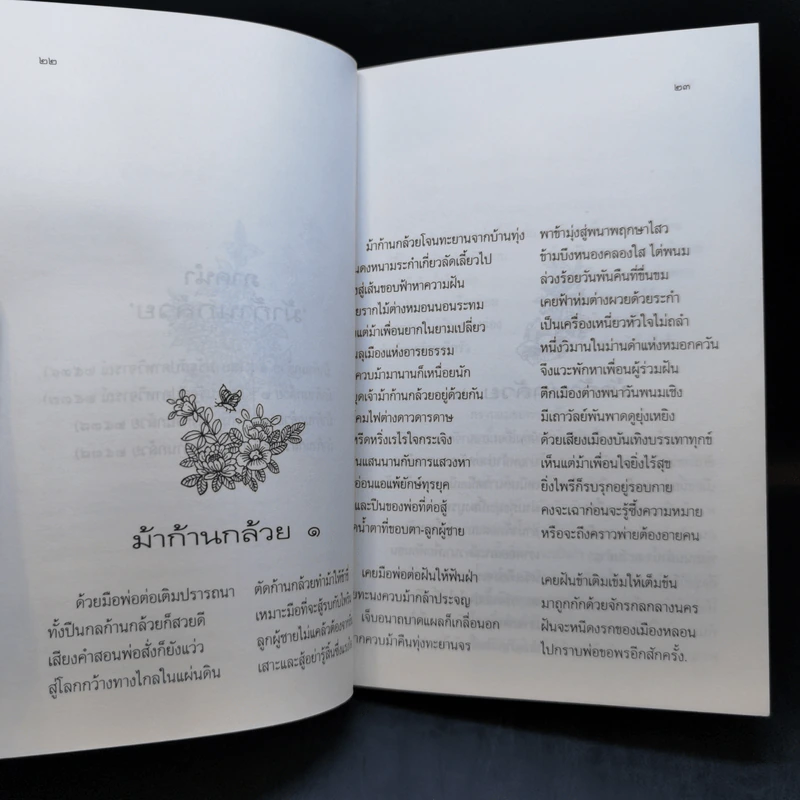 ๒๒
ม้าก้านกล้วย ๑
ด้วยมือพ่อต่อเติมปรารถนา ตัดก้านกล้วยทำม้าให้ข้าขี่
ทั้งปืนกลก้านกล้วยก็สวยดี เหมาะมือที่จะสู้รบกับ
เสียงคำสอนพ่อสั่งก็ยังแว่ว ลูกผู้ชายไม่แคล้วต้อง
สู่โลกกว้างทางไกลในแผ่นดิน เสาะและสู้อย่ารู้สิ้น
๒๓
ม้าก้านกล้วยโจนทะยานจากบ้านทุ่ง พาข้ามุ่งสู่พนาพฤกษาไสว
ดงหนามระกำเกี่ยวลัดเลี้ยวไป ข้ามบึงหนองคลองใส ไต่พนม
สู่เส้นขอบฟ้าหาความฝัน ล่วงร้อยวันพันคืนที่ขื่นขม
รากไม้ต่างหมอนนอนระทม เคยฟ้าห่มต่างผวยด้วยระกำ
แต่ม้าเพื่อนยากในยามเปลี่ยว เป็นเครื่องเหนี่ยวหัวใจไม่ถลำ
ลุเมืองแห่งอารยธรรม หนึ่งวิมานในม่านดำแห่งหมอกควัน
ควบม้ามานานก็เหนื่อยนัก จึงแวะพักหาเพื่อนผู้ร่วมฝัน
เจ้าม้าก้านกล้วยอยู่ด้วยกัน ตึกเมืองต่างพนาวันพนมเชิง
โคมไฟต่างดาวดารดาษ มีเถาวัลย์พันพาดดูยุ่งเหยิง
หรีดหริ่งเรไรใจกระเจิง ด้วยเสียงเมืองบันเทิงบรรเทาทุกข์
แสนนานกับการแสวงหา เห็นแต่ม้าเพื่อนใจยิ่งไร้สุข
อ่อนแอแพ้ยักษ์ทุรยุค ยิ่งไพรีก็รบรุกอยู่รอบกาย
และปืนของพ่อที่ต่อสู้ คงจะเฉาก่อนจะรู้ซึ้งความหมาย
น้ำตาที่ขอบตา-ลูกผู้ชาย หรือจะถึงคราวพ่ายต้องอายคน
เคยมือพ่อต่อฝันให้ฟันฝ่า เคยฝันข้าเติมเข้มให้เต็มข้น
ทะนงควบม้ากล้าประจญ มาถูกกักด้วยจักรกลกลางนคร
เจ็บอนาถบาดแผลก็เกลื่อนอก ฝันจะหนีดงรกของเมืองหลอน
ควบม้าคืนทุ่งทะยานจร ไปกราบพ่อขอพรอีกสักครั้ง.